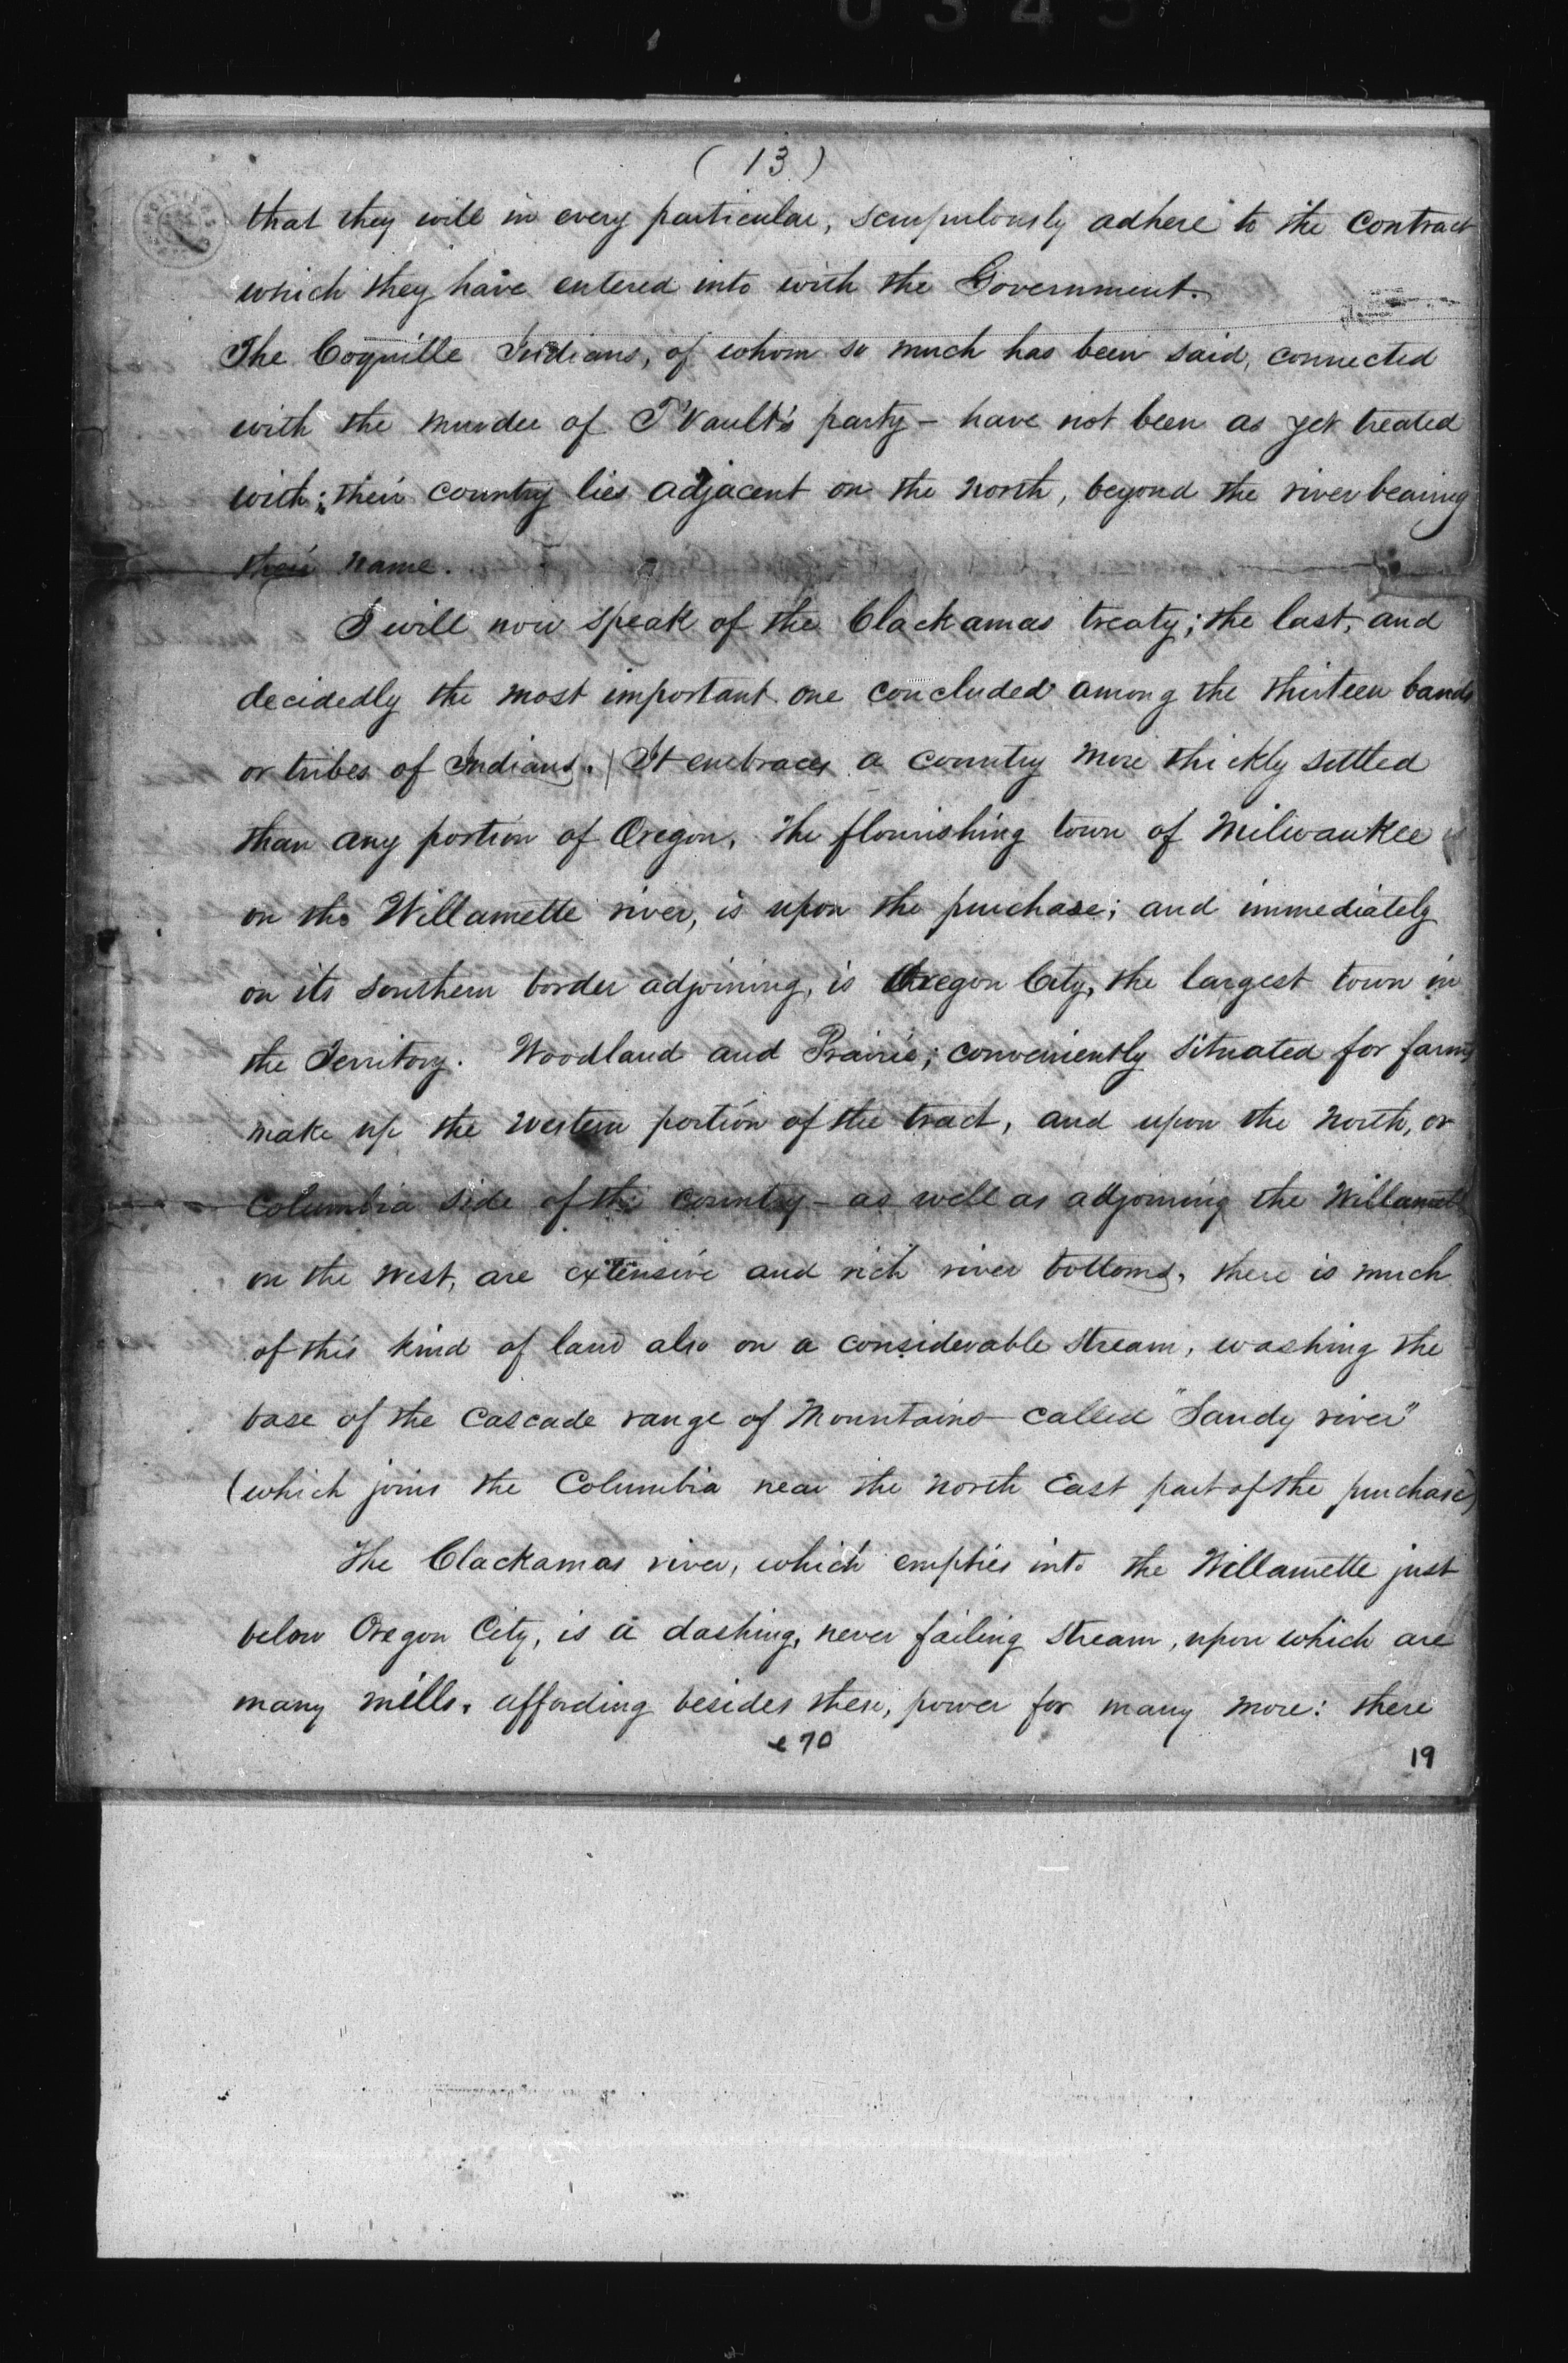 0345
( 13 )
that they will in every particular, scrupulously adhere to the contract
which they have entered into with the Government.
The Coquille Indians, of whom so much has been said, connected
with the murder of T'Vault's party – have not been as yet treated
with; their country lies adjacent on the north, beyond the river bearing
their name.
I will now speak of the Clackamas treaty; the last, and
decidedly the most important one concluded among the thirteen bands
or tribes of Indians. It embraces a country more thickly settled
than any portion of Oregon. The flourishing town of Milwaukee
on the Willamette river, is upon the purchase; and immediately
on its southern border adjoining, is Oregon City, the largest town in
the Territory. Woodland and Prairie; conveniently situated for farms
make up the western portion of the tract, and upon the north, or
Columbia side of the country – as well as adjoining the Willamette
on the west, are extensive and rich river bottoms, there is much
of this kind of land also on a considerable stream, washing the
base of the Cascade range of Mountains – called "Sandy river"
(which joins the Columbia near the north East part of the purchase)
The Clackamas river, which empties into the Willamette just
below Oregon City, is a dashing, never failing stream, upon which are
many mills, affording besides these, power for many more: there
e 70
19